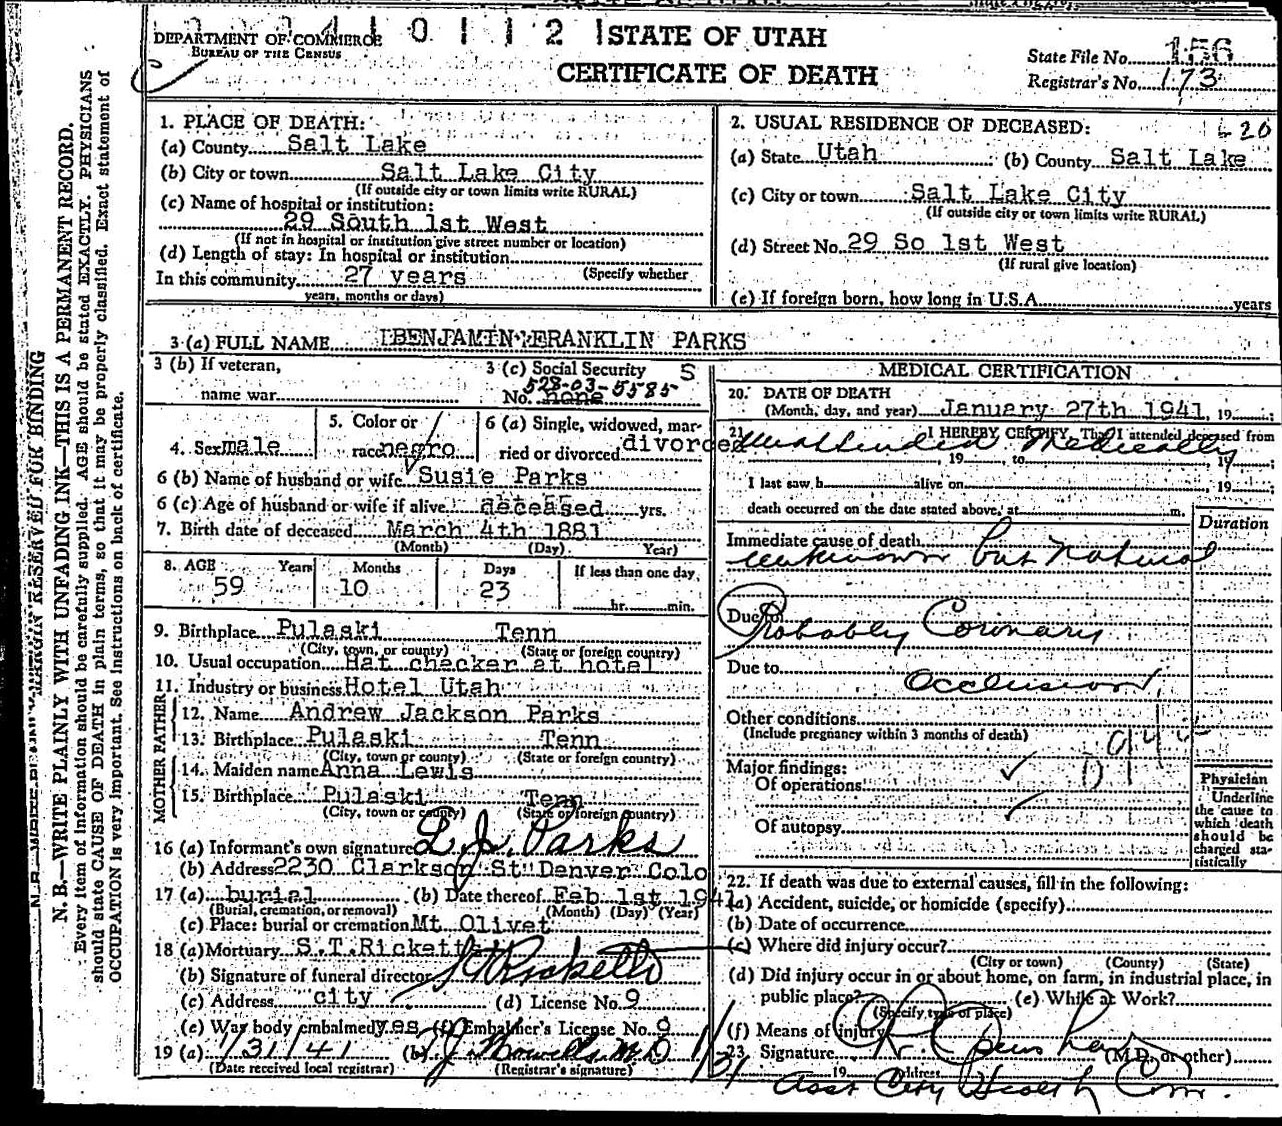 DEPARTMENT OF COMMERCE
BUREAU OF THE CENSUS
STATE OF UTAH
CERTIFICATE OF DEATH
State File No. 156
Registrar's No. 173
MARGIN RESERVED FOR BINDING
N. B.—WRITE PLAINLY WITH UNFADING INK—THIS IS A PERMANENT RECORD.
Every item of information should be carefully supplied. AGE should be stated EXACTLY. PHYSICIANS
should state CAUSE OF DEATH in plain terms, so that it may be properly classified. Exact statement of
OCCUPATION is very important. See instructions on back of certificate.
1. PLACE OF DEATH:
(a) County Salt Lake
(b) City or town Salt Lake City
(If outside city or town limits write RURAL)
(c) Name of hospital or institution:
29 South 1st West
(If not in hospital or institution give street number or location)
(d) Length of stay: In hospital or institution
(Specify whether
In this community 27 years
years, months or days)
2. USUAL RESIDENCE OF DECEASED: 20
(a) State Utah (b) County Salt Lake
(c) City or town Salt Lake City
(If outside city or town limits write RURAL)
(d) Street No. 29 So 1st West
(If rural give location)
(e) If foreign born, how long in U.S.A. years
3 (a) FULL NAME BENJAMIN FRANKLIN PARKS
3 (b) If veteran,
name war
3 (c) Social Security S
528-03-5585
No. none
4. Sex male
5. Color or
race negro
6 (a) Single, widowed, mar-
ried or divorced divorced
6 (b) Name of husband or wife Susie Parks
6 (c) Age of husband or wife if alive deceased yrs.
7. Birth date of deceased March 4th 1881
(Month) (Day) Year)
8. AGE Years Months Days If less than one day
59 10 23 hr. min.
9. Birthplace Pulaski Tenn
(City, town, or county) (State or foreign country)
10. Usual occupation Hat checker at hotel
11. Industry or business Hotel Utah
FATHER
12. Name Andrew Jackson Parks
13. Birthplace Pulaski Tenn
(City, town or county) (State or foreign country)
MOTHER
14. Maiden name Anna Lewis
15. Birthplace Pulaski Tenn
(City, town or county) (State or foreign country)
16 (a) Informant's own signature L. J. Parks
(b) Address 2230 Clarkson St Denver Colo
17 (a) burial (b) Date thereof Feb 1st 1941
(Burial, cremation, or removal) (Month) (Day) (Year)
(c) Place: burial or cremation Mt Olivet
18 (a) Mortuary S.T.Rickett
(b) Signature of funeral director
(c) Address city (d) License No. 9
(e) Was body embalmed yes (f) Embalmer's License No. 9
19 (a) 1/31/41 (b) J. Howells M D
(Date received local registrar) (Registrar's signature)
MEDICAL CERTIFICATION
20. DATE OF DEATH
(Month, day, and year) January 27th 1941, 19
21. I HEREBY CERTIFY, That I attended deceased from
unattended Medically
, 19 , to , 19 ;
I last saw h alive on , 19 ;
death occurred on the date stated above, at m.
Duration
Immediate cause of death
unknown but natural
Due to
Probably Coronary
Due to
Occlusion
Other conditions
(Include pregnancy within 3 months of death)
Major findings:
Of operations
Of autopsy
Physician
Underline
the cause to
which death
should be
charged sta-
tistically
22. If death was due to external causes, fill in the following:
(a) Accident, suicide, or homicide (specify)
(b) Date of occurrence
(c) Where did injury occur?
(City or town) (County) (State)
(d) Did injury occur in or about home, on farm, in industrial place, in
public place? (e) While at Work?
(Specify type of place)
(f) Means of injury
23. Signature (M.D. or other)
1/31 19 Address
Asst City Health Com.